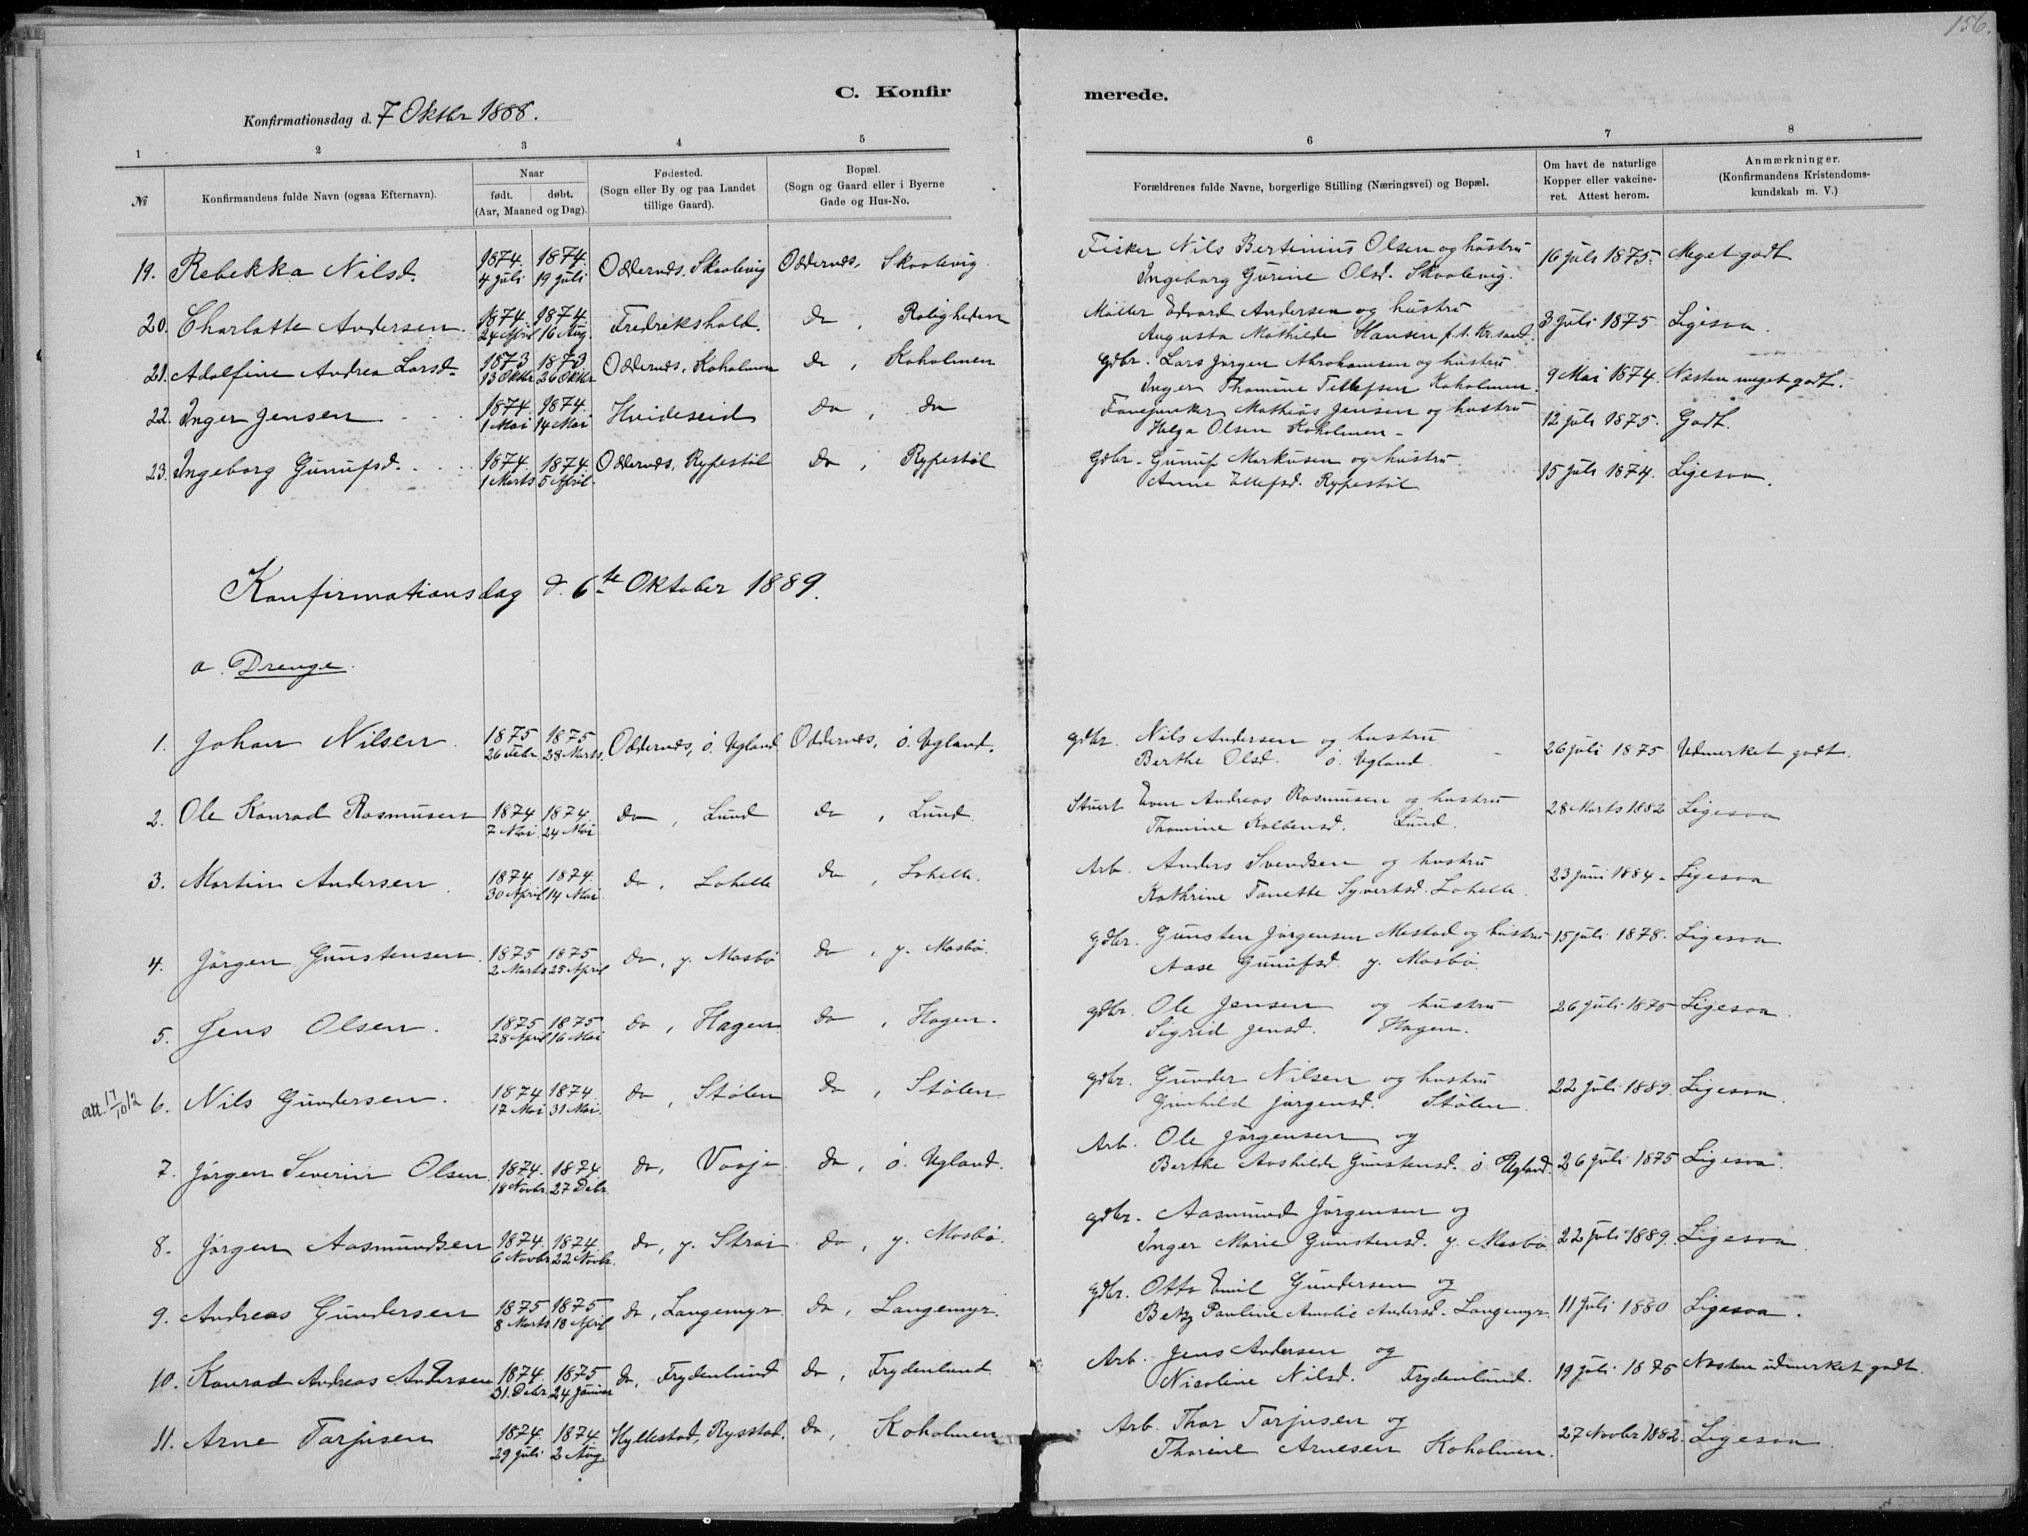 156.
C. Konfir merede.
Konfirmationsdag d. 7 Oktbr 1888.
1 2 3 4 5 6 7 8
№ Konfirmandens fulde Navn (ogsaa Efternavn). Naar født. døbt. (Aar, Maaned og Dag). Fødested. (Sogn eller By og paa Landet tillige Gaard). Bopæl. (Sogn og Gaard eller i Byerne Gade og Hus-No. Forældrenes fulde Navne, borgerlige Stilling (Næringsvei) og Bopæl. Om havt de naturlige Kopper eller vakcineret. Attest herom. Anmærkninger. (Konfirmandens Kristendomskundskab m. V.)
19. Rebekka Nilsd. 1874. 4 juli 1874. 19 juli Oddernes. Skaalevig Oddernes, Skaalevig. Fisker Nils Bertinius Olsen og hustru Ingeborg Gurine Olsd. Skaalevig. 16 juli 1875. Meget godt
20. Charlotte Andersen. 1874. 24 April 1874. 16 Aug. Fredrikshald. do, Roligheden Møller Edvard Andersen og hustru Augusta Mathilde Hansen f.t. Kr.sand. 3 juli 1875 Ligesaa.
21. Adolfine Andrea Larsd. 1873 13 Oktbr 1873 26 Oktbr Oddernes, Koholmen do, Koholmen gdbr. Lars Jørgen Abrahamsen og hustru Inger Thomine Tellefsen Koholmen. 9 Mai 1874. Næsten meget godt.
22. Inger Jensen 1874. 1 Mai 1874. 14 Mai Hvideseid do, do Fanejunker Mathias Jensen og hustru Helga Olsen Koholmen 12 juli 1875. Godt.
23. Ingeborg Gunufsd. 1874. 1 Marts 1874. 5 April. Oddernes, Rypestøl do, Rypestøl gdbr. Gunuf Markusen og hustru Anne Ellefsd. Rypestøl 15 juli 1874. Ligesaa.
Konfirmationsdag d. 6te Oktober 1889.
a. Drenge.
1. Johan Nilsen. 1875 26 Febr. 1875 28 Marts. Oddernes, ö. Vgland Oddernes, ö. Vgland. gdbr. Nils Andersen og hustru Berthe Olsd. ö. Vgland. 26 juli 1875 Udmerket godt.
2. Ole Konrad Rasmusen 1874 7 Mai 1874 24 Mai do, Lund do, Lund. Stuert Even Andreas Rasmusen og hustru Thomine Kolbensd. Lund. 28 Marts 1882 Ligesaa
3. Martin Andersen. 1874. 30 April 1874. 14 Mai do, Lohelle do, Lohelle. Arb. Anders Svendsen og hustru Kathrine Tanette Syvertsd. Lohelle. 23 juni 1884. Ligesaa
4. Jörgen Gunstensen. 1875 2 Marts 1875 25 April do, y. Mosbö do, y. Mosbö. gdbr. Gunsten Jörgensen Mestad og hustru Aase Gunufsd. y. Mosbö. 15 juli 1878. Ligesaa
5. Jens Olsen. 1875 28 April 1875 16 Mai do, Hagen do, Hagen. gdbr. Ole Jensen og hustru Sigrid Jensd. Hagen. 26 juli 1875 Ligesaa.
att. 17/10 12 6. Nils Gundersen. 1874 17 Mai 1874 31 Mai. do, Stølen do, Stølen gdbr. Gunder Nilsen og hustru Gunhild Jørgensd. Stølen. 22 juli 1889. Ligesaa.
7. Jörgen Severin Olsen. 1874. 18 Novbr. 1874. 27 Debr. do, Vaaje do, ö. Vgland. Arb. Ole Jörgensen og Berthe Aashilde Gunstensd. ö Vgland. 26 juli 1875 Ligesaa.
8. Jörgen Aasmundsen 1874. 6 Novbr 1874 22 Novbr. do, y. Strai do, y. Mosbö. gdbr. Aasmund Jörgensen og Inger Marie Gunstensd. y. Mosbö 22 juli 1889. Ligesaa.
9. Andreas Gundersen 1875 8 Marts 1875 18 April do, Langemyr. do, Langemyr. gdbr. Otto Emil Gundersen og Betzy Pauline Amalie Andersd. Langemyr. 11 juli 1880 Ligesaa.
10. Konrad Andreas Andersen 1874 31. Debr. 1875 24 Januar do, Frydenlund do, Frydenlund Arb. Jens Andersen og Nicoline Nilsd. Frydenlund. 19 juli 1875 Næsten udmerket godt.
11. Arne Tarjusen 1874. 29 juli 1874 2 Aug. Hyllestad, Rysstad. do, Koholmen Arb. Thor Tarjusen og Thorine Arnesen Koholmen. 27 Novbr 1882. Ligesaa.